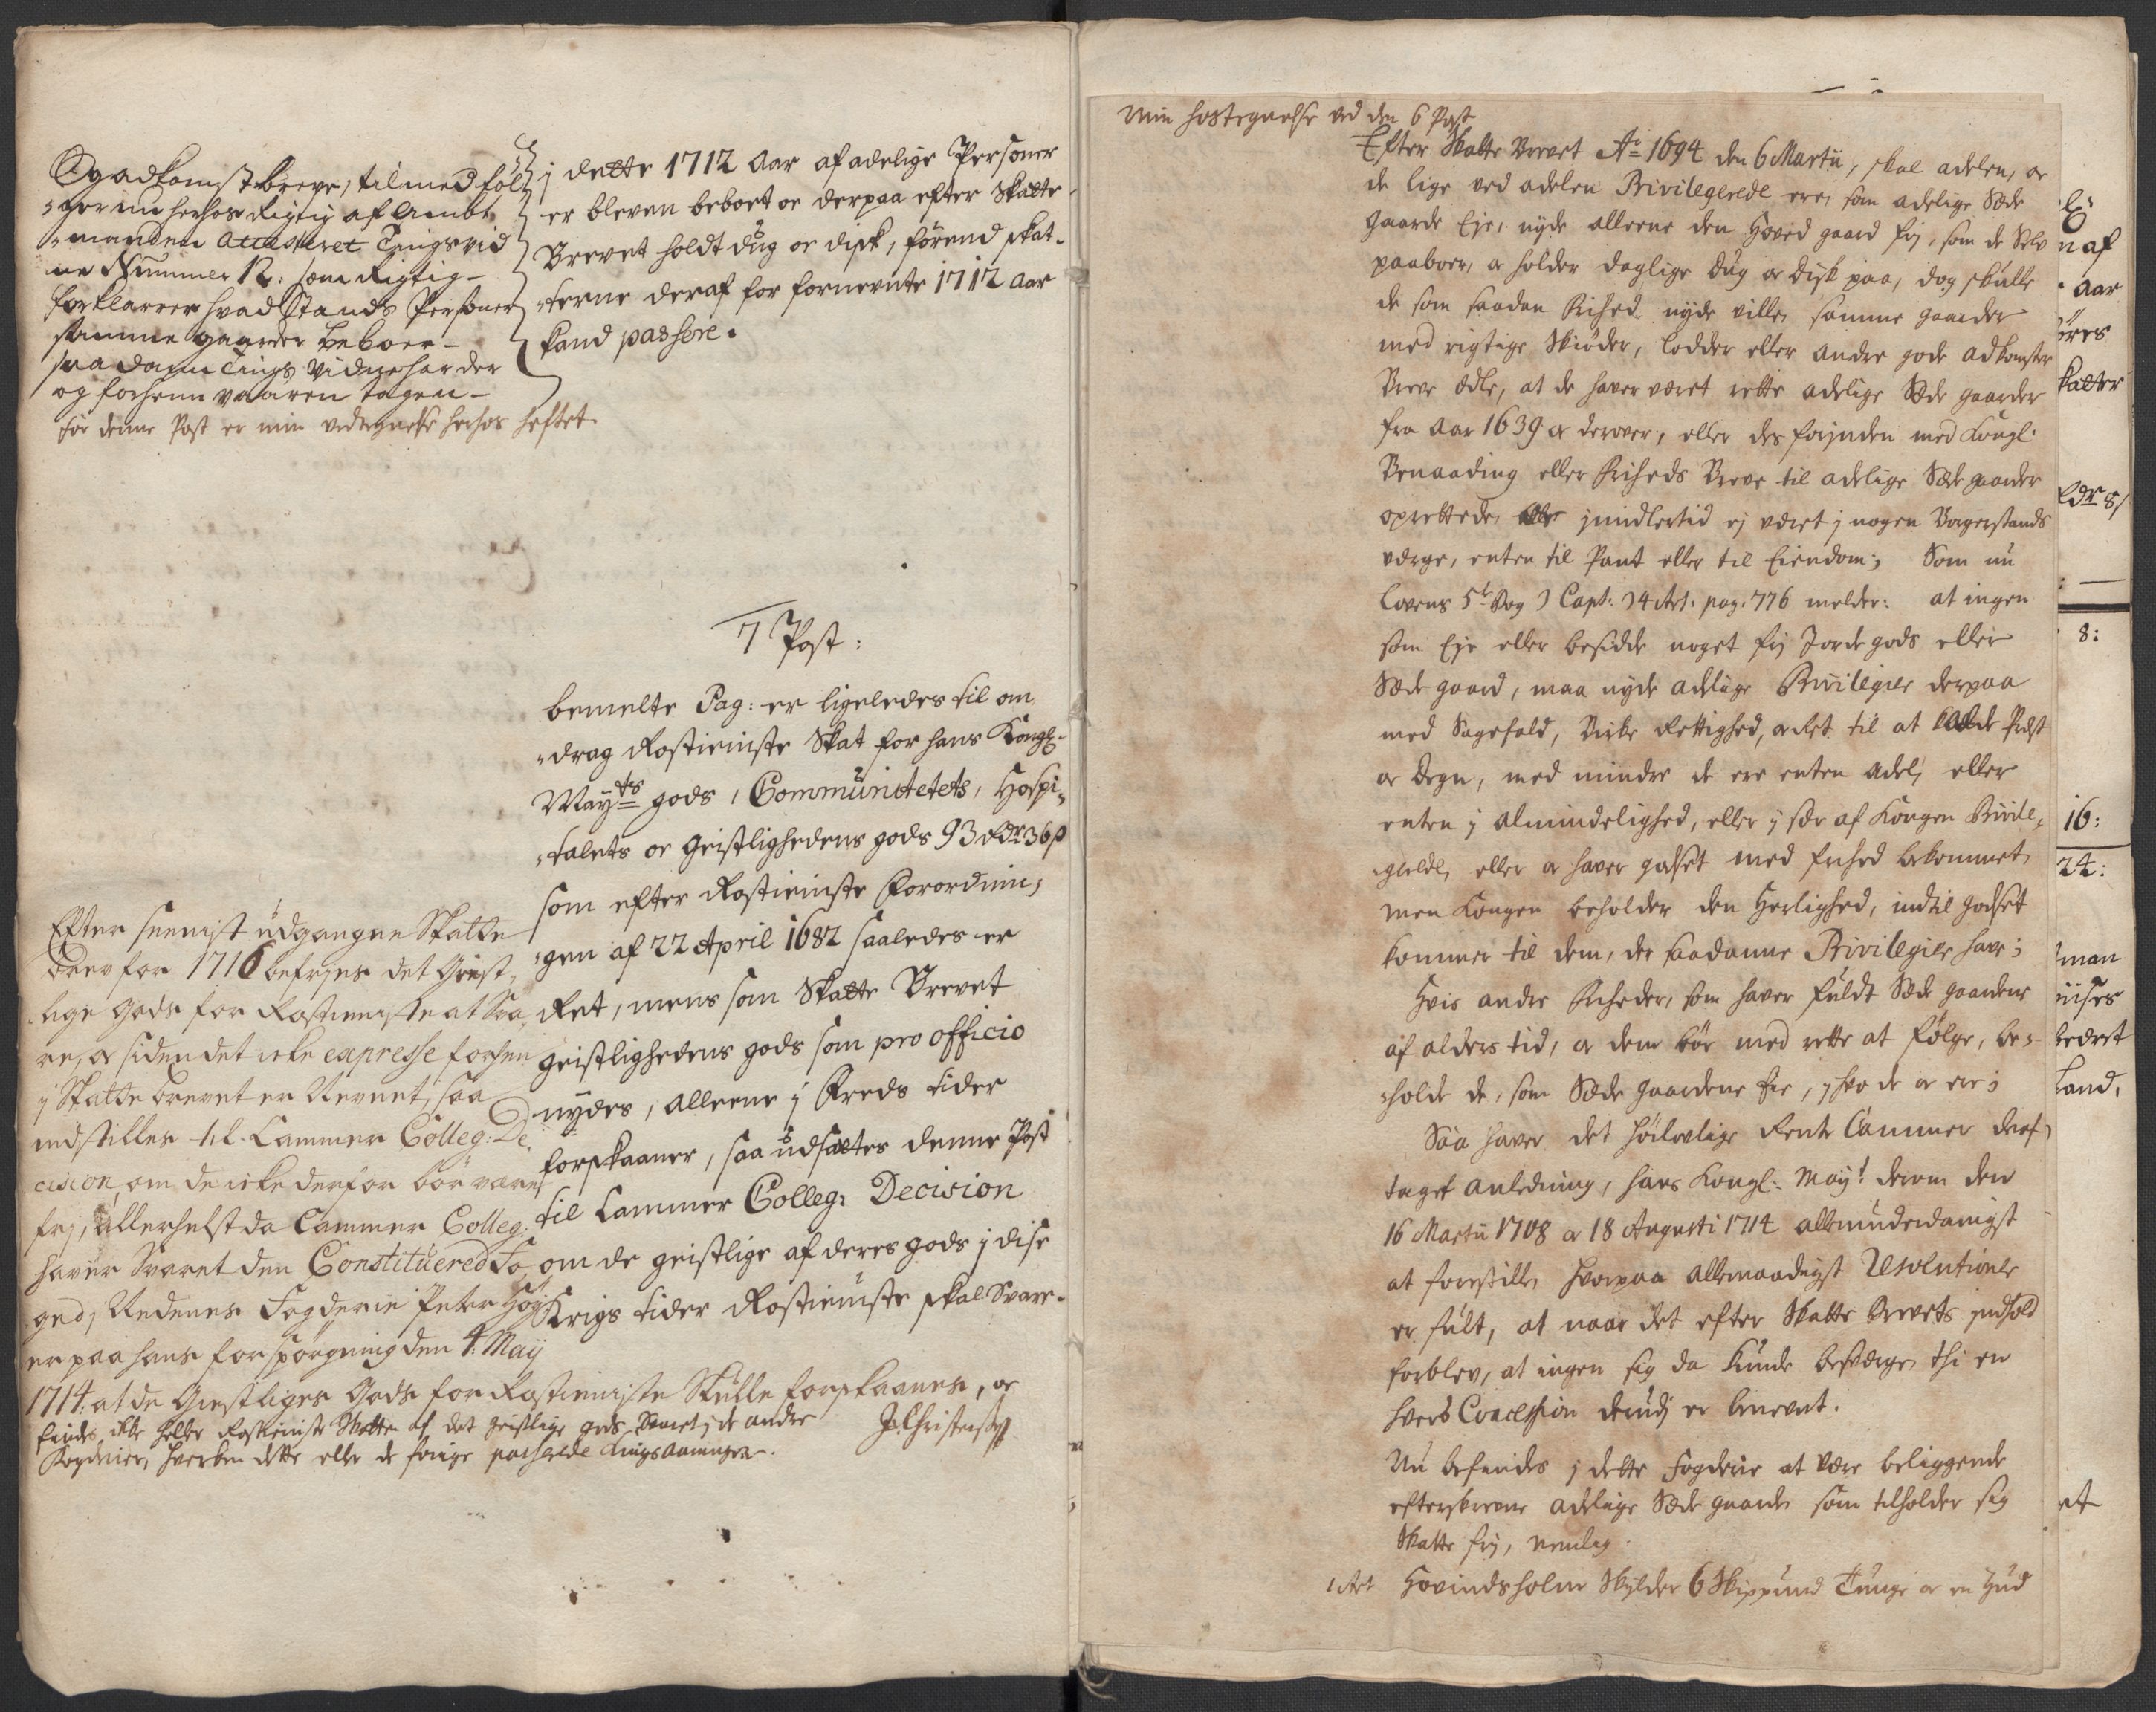 Og adkomst breve, tilmed föl
ger nu herhos Rigtig af Ambt
manden attesteret Tingsvid
ne Nummer 12: som Rigtig
forklarer hvad Stands Personer
samme gaarder beboer
saadann Tings Vidne har der
og forhenn vaaren tagen
for denne Post er min vedtegnelse herhos heftet
j dette 1712 Aar af adelige Personer
er bleven beboet oc derpaa efter Skatte
Brevet holdt dug oc disk, förend skat
terne deraf for fornevnte 1712 Aar
kand passere.
7 Post:
bemelte Pag: er ligeledes til om
drag Rostieniste Skat for hans Kongl
Mayts gods, Communitetets, Hospi
talets oc geistlighedens gods 93 Rdr 36 s
som efter Rostieniste Forordnin
gen af 22 April 1682 saaledes er
Ret, mens som Skatte Brevet
geistlighedens gods som pro officio
nydes, alleene j Freds tider
forskaaner, saa udsættes denne Post
til Cammer Colleg: Decision
om de geistlige af deres gods j dise
Krigs tider Rostieniste skal Svare.
Efter seenist udgangne Skatte
brev for 1716 befries det Geist
lige Gods for Rostieniste at Sva
re, oc siden det icke expresse forhen
j Skatte brevet er Nevnet, saa
indstilles til Cammer Colleg: De
cision, om de icke derfor bör vare
frj, allerhelst da Cammer Colleg:
haver Svaret den Constituered Fo
ged j Nedenes Fogderie Peter
er paa hans forspörgning den 4 Maij
1714. at de Geistliges Gods for Rostieniste Skulle forskaanes, oc
findes icke heller Rostieniste Skatten af det geistlige gods Svaret j de andre
Fogderier, hverken dette eller de forige passerede Krigs aaringer.
J. Christensen
Min hostegnelse ved den 6 Post
Efter Skatte Brevet Ao 1694 den 6 Martii, skal adelen, oc
de lige ved adelen Privilegerede ere, som adelige Sæde
gaarde Eje, nyde alleene den Hoved gaard frj, som de Selv
paaboer, oc holder daglige Dug oc Disk paa, dog skulle
de som saadan Frihed nyde ville, samme gaarder
med rigtige Skiöder, lodder eller andre gode adkomster
Breve ædle, at de haver været rette adelige Sæde gaarder
fra Aar 1639 oc derover, eller des forjnden med Kongl.
Benaading eller Friheds Breve til adelige Sæde gaarder
oprettede, jmidlertid ej været j nogen Borgerstands
værge, enten til Pant eller til Eiendom; Som nu
Lovens 5te Bog 3 Capt: 34 Art. pag. 776 melder: at ingen
som Eje eller besidde noget frj Jorde gods eller
Sæde gaard, maa nyde adelige Privilegier derpaa
med Sagefald, Birke Rettighed, oc Ret til at kalde Præst
oc Degn, med mindre de ere enten adel, eller
enten j almindelighed, eller j sær af Kongen Privile
gerede, eller oc haver godset med frihed bekommet
men Kongen beholder den Herlighed, indtil godset
kommer til dem, der saadanne Privilegier have;
Hvis andre Friheder, som haver fuldt Sæde gaardene
af alders tid, oc dem bör med rette at fölge, be
holde de, som Sæde gaardene Eje, j hvo de oc ere;
Saa haver det höilovlige Rente Cammer deraf
taget anledning, hans Kongl. Mayt derom den
16 Martii 1708 oc 18 Augusti 1714 allerunderdanigst
at forestille, hvorpaa allernaadigst Resolutioner
er fult, at naar det efter Skatte Brevets jndhold
forblev, at ingen sig da kunde besværge, thi en
hvers Concession derudj er benevnt.
Nu befindes j dette Fogderie at være beliggende
efterskrevne adelige Sæde gaarde som tilholder sig
Skatte frj, nemlig.
1 Art Hovindsholm Skylder 6 Skippund Tunge oc en Hud
n af
Aar
8:
16:
24:
man
Land,